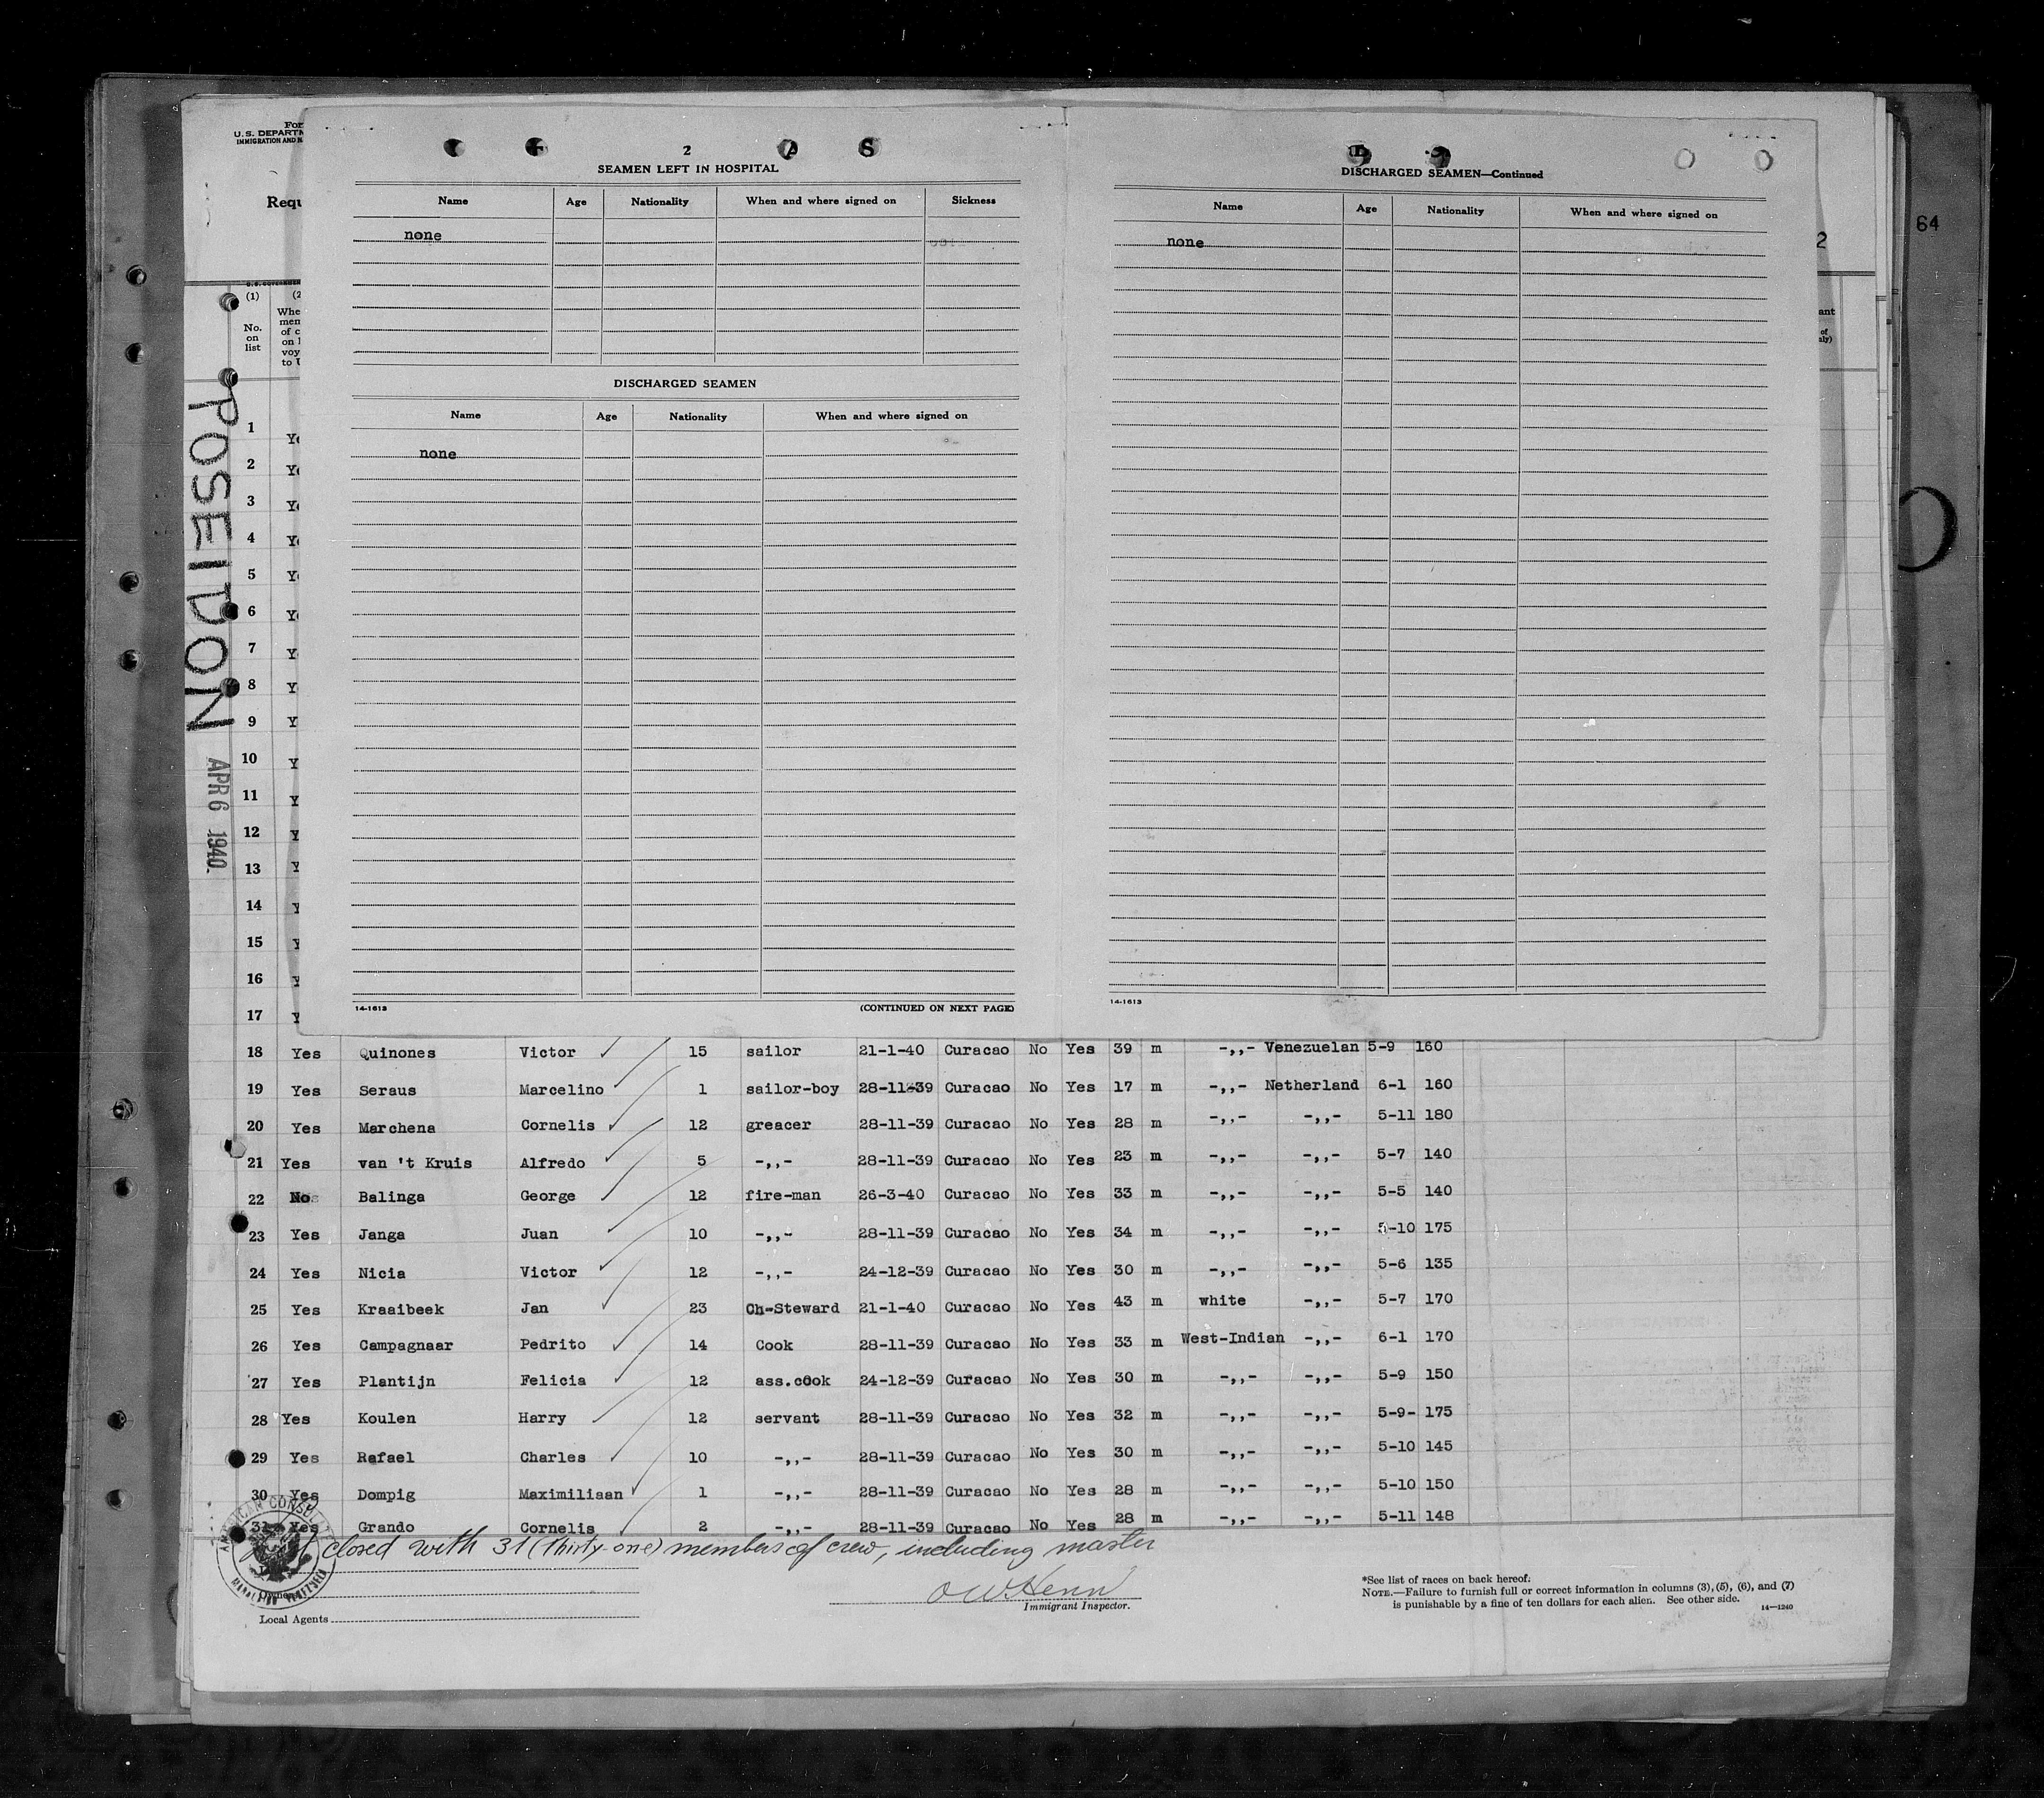 For
U.S. DEPARTM
IMMIGRATION AND N
Requ
64
2
POSEIDON
APR 6 1940.
2
SEAMEN LEFT IN HOSPITAL
Name Age Nationality When and where signed on Sickness
none
DISCHARGED SEAMEN
Name Age Nationality When and where signed on
none
14-1613 (CONTINUED ON NEXT PAGE)
DISCHARGED SEAMEN—Continued
Name Age Nationality When and where signed on
none
14-1613
(1) (2
No. on list
Whe
mem
of c
on l
voy
to U
1 Ye
2 Ye
3 Ye
4 Ye
5 Ye
6 Ye
7 Y
8 Y
9 Y
10 Y
11 Y
12 Y
13 Y
14 Y
15 Y
16 Y
17 Y
18 Yes Quinones Victor 15 sailor 21-1-40 Curacao No Yes 39 m -,,- Venezuelan 5-9 160
19 Yes Seraus Marcelino 1 sailor-boy 28-11-39 Curacao No Yes 17 m -,,- Netherland 6-1 160
20 Yes Marchena Cornelis 12 greacer 28-11-39 Curacao No Yes 28 m -,,- -,,- 5-11 180
21 Yes van 't Kruis Alfredo 5 -,,- 28-11-39 Curacao No Yes 23 m -,,- -,,- 5-7 140
22 No Balinga George 12 fire-man 26-3-40 Curacao No Yes 33 m -,,- -,,- 5-5 140
23 Yes Janga Juan 10 -,,- 28-11-39 Curacao No Yes 34 m -,,- -,,- 5-10 175
24 Yes Nicia Victor 12 -,,- 24-12-39 Curacao No Yes 30 m -,,- -,,- 5-6 135
25 Yes Kraaibeek Jan 23 Ch-Steward 21-1-40 Curacao No Yes 43 m white -,,- 5-7 170
26 Yes Campagnaar Pedrito 14 Cook 28-11-39 Curacao No Yes 33 m West-Indian -,,- 6-1 170
27 Yes Plantijn Felicia 12 ass.cook 24-12-39 Curacao No Yes 30 m -,,- -,,- 5-9 150
28 Yes Koulen Harry 12 servant 28-11-39 Curacao No Yes 32 m -,,- -,,- 5-9- 175
29 Yes Rafael Charles 10 -,,- 28-11-39 Curacao No Yes 30 m -,,- -,,- 5-10 145
30 Yes Dompig Maximiliaan 1 -,,- 28-11-39 Curacao No Yes 28 m -,,- -,,- 5-10 150
31 Yes Grando Cornelis 2 -,,- 28-11-39 Curacao No Yes 28 m -,,- -,,- 5-11 148
closed with 31 (thirty-one) members of crew, including master
AMERICAN CONSUL
O W. Henn
Immigrant Inspector.
Local Agents
*See list of races on back hereof.
NOTE.—Failure to furnish full or correct information in columns (3), (5), (6), and (7)
is punishable by a fine of ten dollars for each alien. See other side.
14—1240